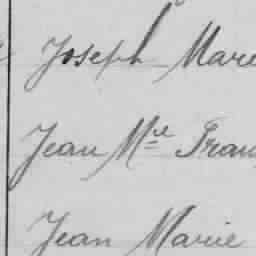 Joseph Marie
Jean Mie Fran
Jean Marie